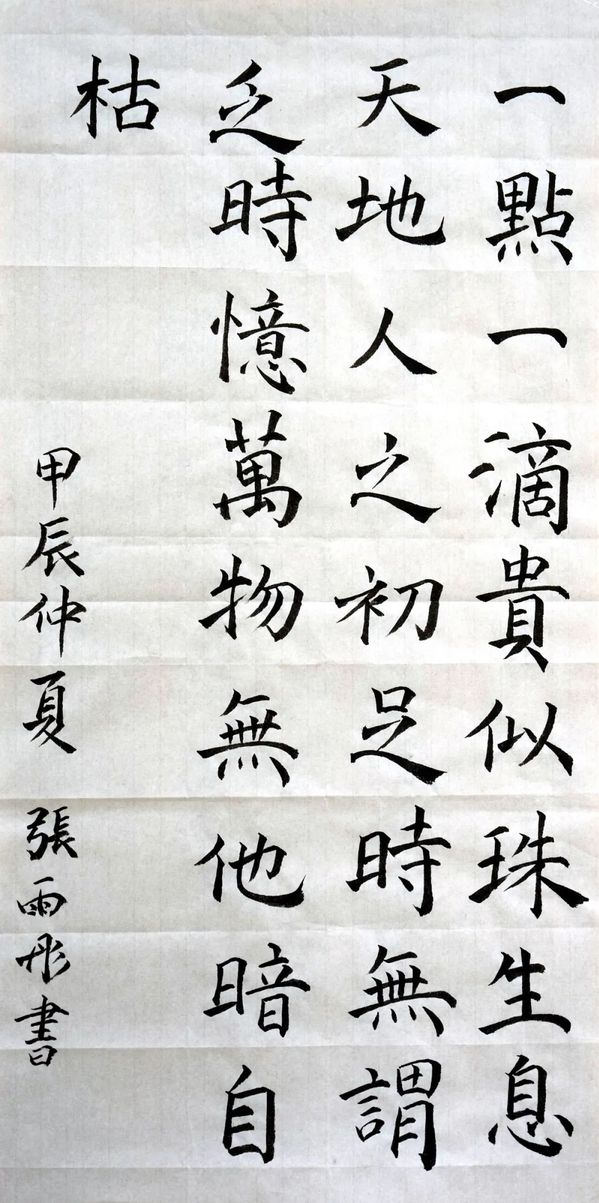 一點一滴貴似珠生息
天地人之初足時無謂
乏時憶萬物無他暗自
枯
甲辰仲夏 張雨彤書